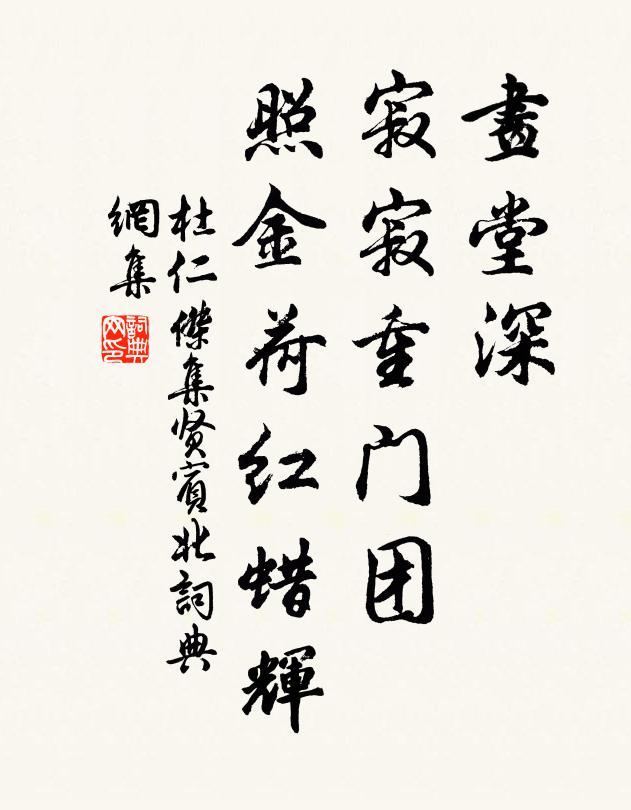 畫堂深
寂寂重门团
照金荷红蜡輝
杜仁傑集贤賓北詞典
網集
詞典
网印